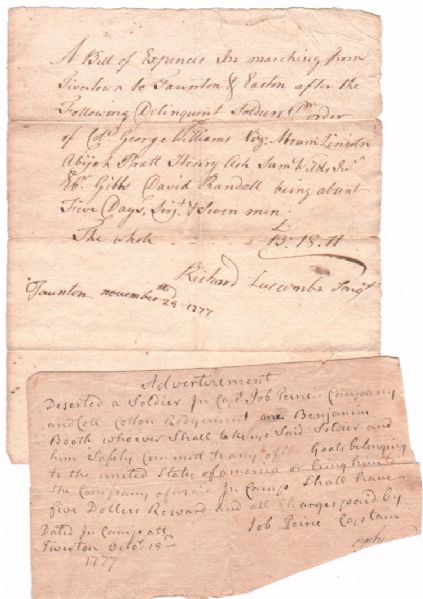 A Bill of Expences In marching from
Tivertown to Taunton & Easton after the
Following Delinquent Soldiers Pr order
of Colo George Williams Viz: Abram Lincoln
Abijah Pratt Henry Ash Saml Wilde Jnr
Ebr Gibbs David Randell being absent
Five Days, Serjt & Seven men
£
The whole 13:18:11
Richard Luscombe Serjt
Taunton november 29th 1777
Advertirement
Deserted a Soldier In Capt Job Peirce Company
and Coll Cotton Ridgement one Benjamin
Booth whoever Shall take up Said Soldier and
him Safely Committ to any of the Goals belonging
to the united States of america or bring him to
the Company aforesaid In Camp Shall have
five Dollers Reward and all Charges paid by
Job Peirce Captain
Dated In Camp att
Tiverton Octor 18th
1777